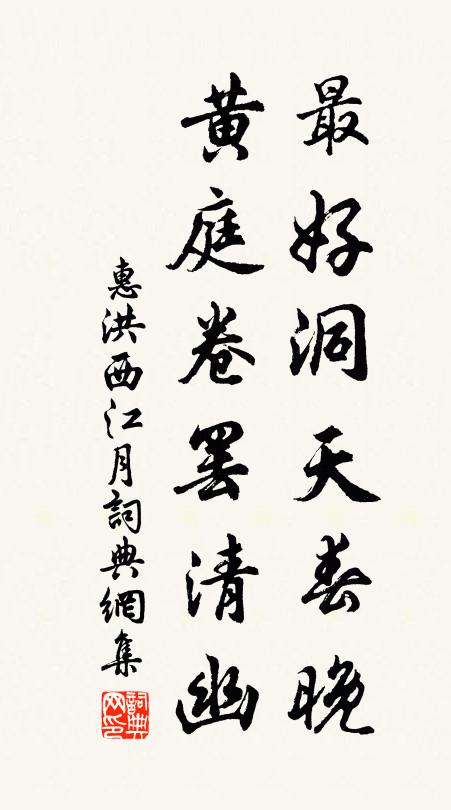 最好洞天春晚
黄庭卷罢清幽
惠洪西江月詞典網集
詞典網印